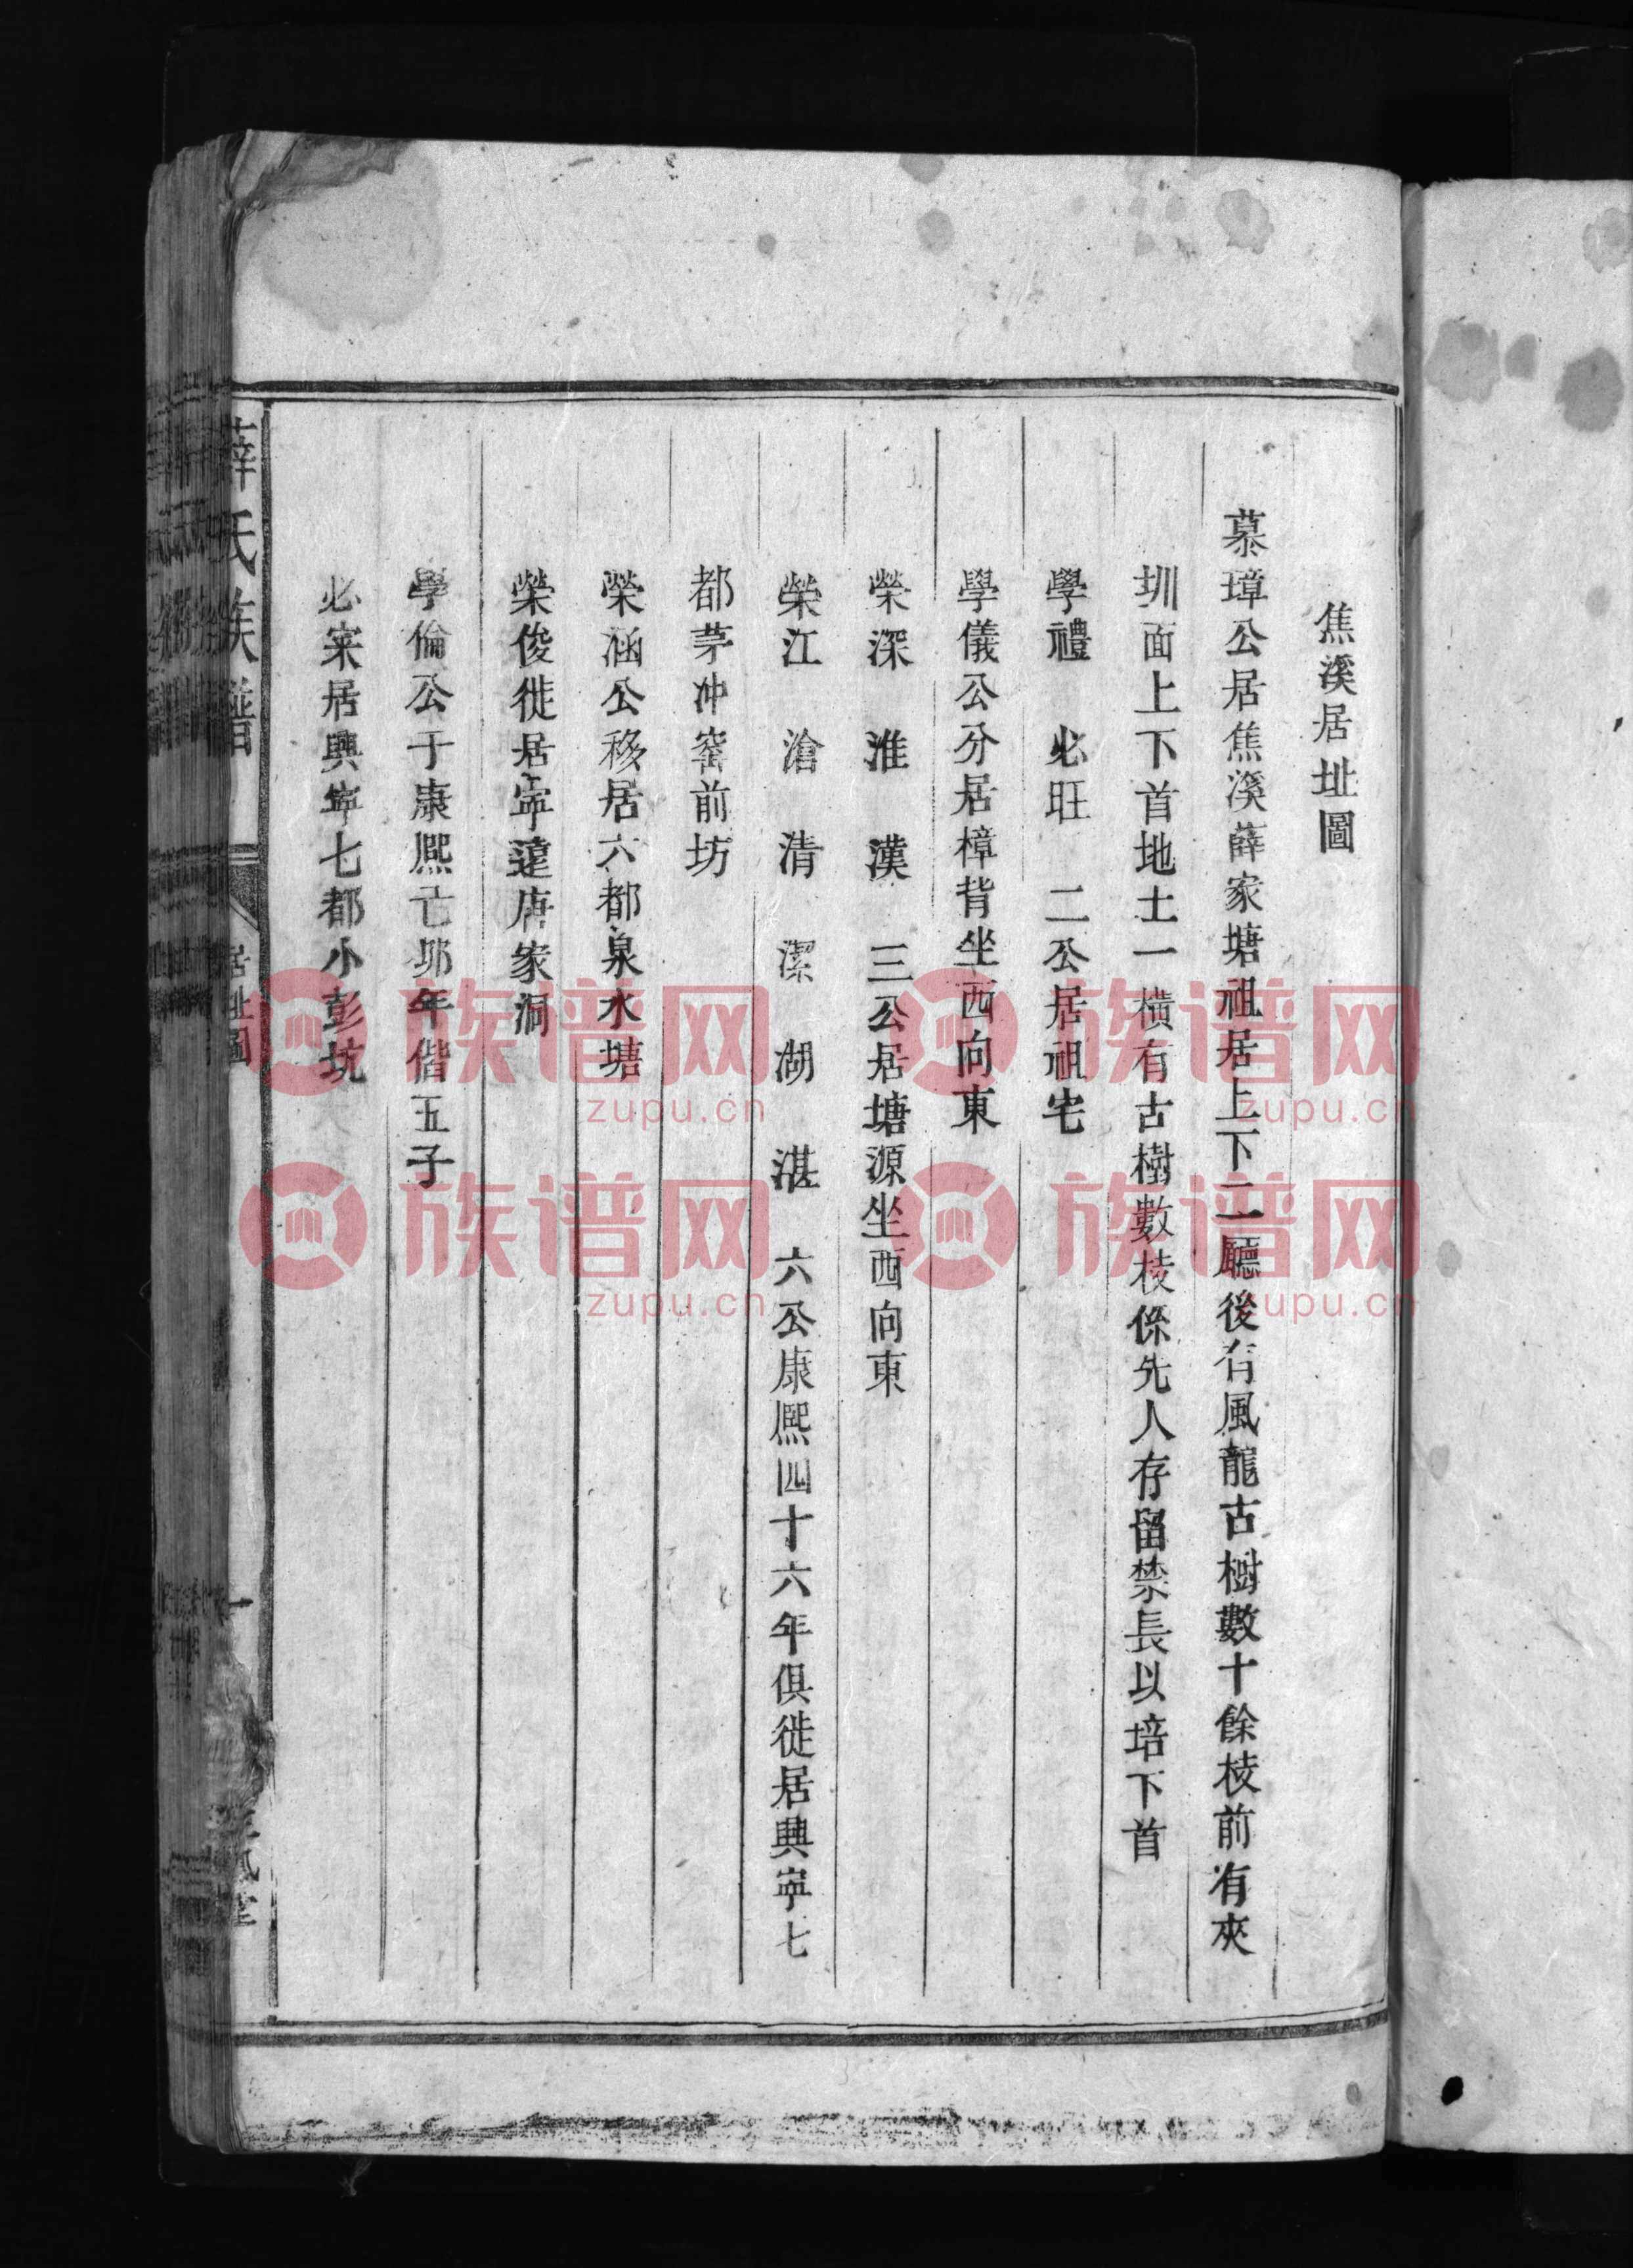 焦溪居址圖
慕璋公居焦溪薛家塘祖居上下二廳後有風龍古樹數十餘枝前有夾
圳面上下首地土一橫有古樹數枝係先人存留禁長以培下首
學禮 必旺 二公居祖宅
學儀公分居樟背坐西向東
榮深 淮 漢 三公居塘源坐西向東
榮江 滄 清 潔 湖 湛 六公康熙四十六年俱徙居興寧七
都茅冲窰前坊
榮涵公移居六都泉水塘
榮俊徙居寧遠唐家洞
學倫公于康熙亡邜年偕五子
必寀居興寧七都小彭坑
薛氏族譜
居址圖
一
堂
族谱网
zupu.cn
族谱网
zupu.cn
族谱网
zupu.cn
族谱网
zupu.cn